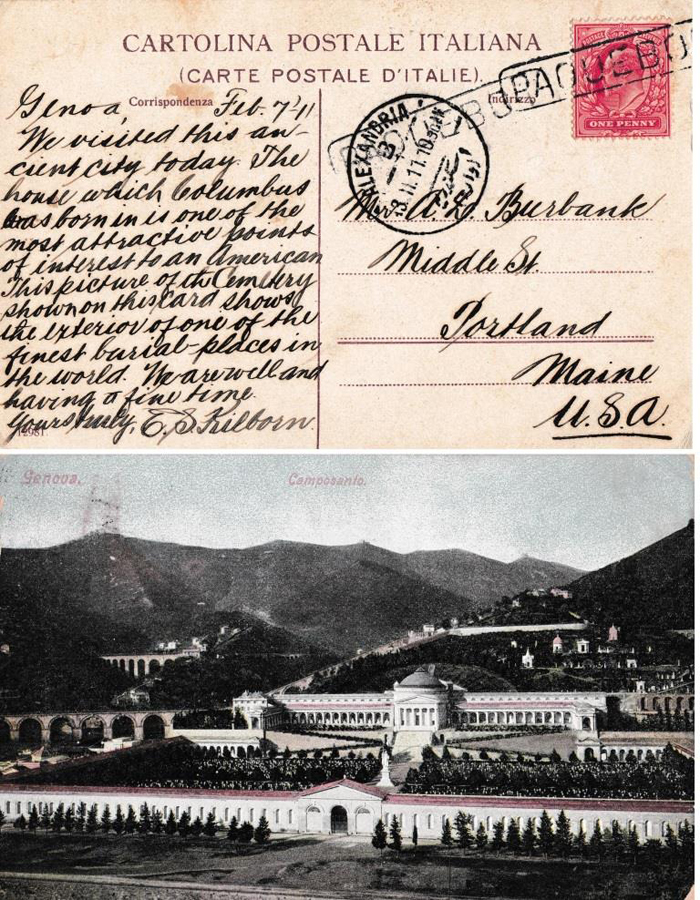 CARTOLINA POSTALE ITALIANA
(CARTE POSTALE D'ITALIE).
Corrispondenza
Indirizzo
Genoa, Feb. 7 '11
We visited this an-
cient city today. The
house which Columbus
was born in is one of the
most attractive points
of interest to an American
This picture of the Cemetery
shown on this card shows
the exterior of one of the
finest burial-places in
the world. We are well and
having a fine time.
Yours truly, E. S. Kilborn.
12981
ONE PENNY
PAQUEBO
PAQUEB
ALEXANDRIA
13.II.11.10
Burbank
Middle St.
Portland
Maine
U.S.A.
Genova.
Camposanto.